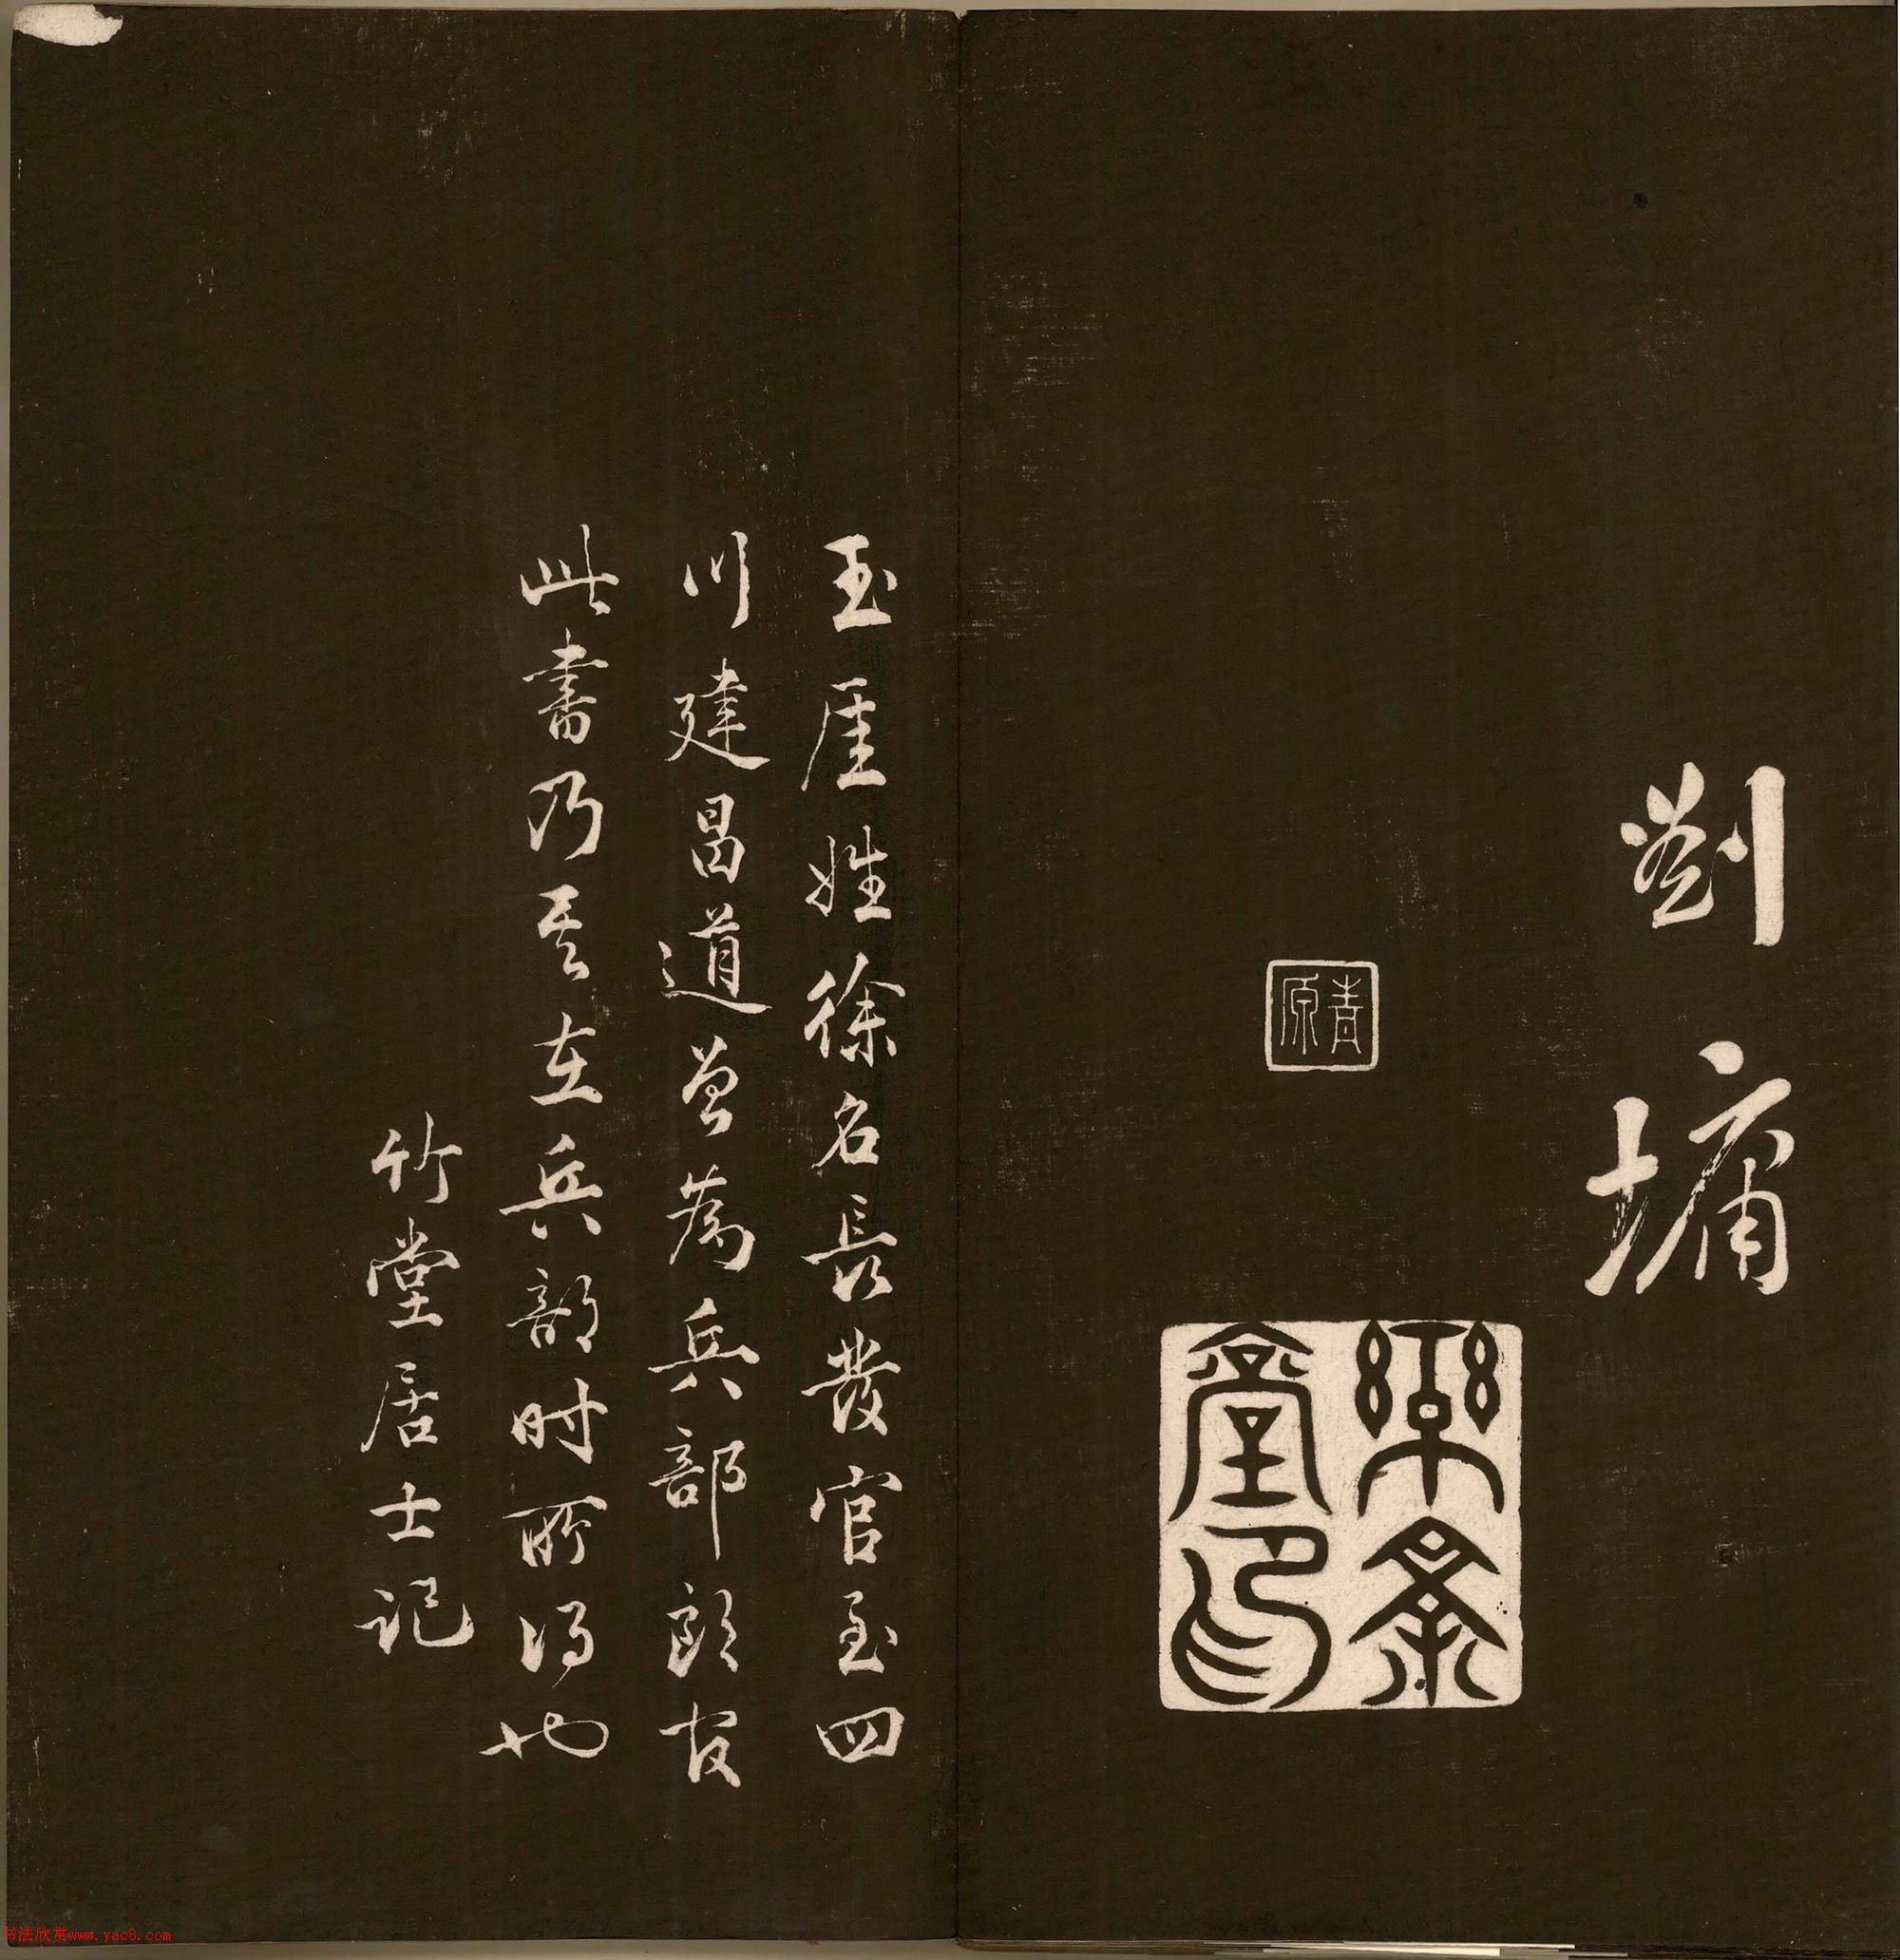 劉墉
青原
玉厓姓徐名長發官至四
川建昌道曾為兵部郎故
此書乃其在兵部时所得也
竹堂居士記
书法欣赏www.yac8.com